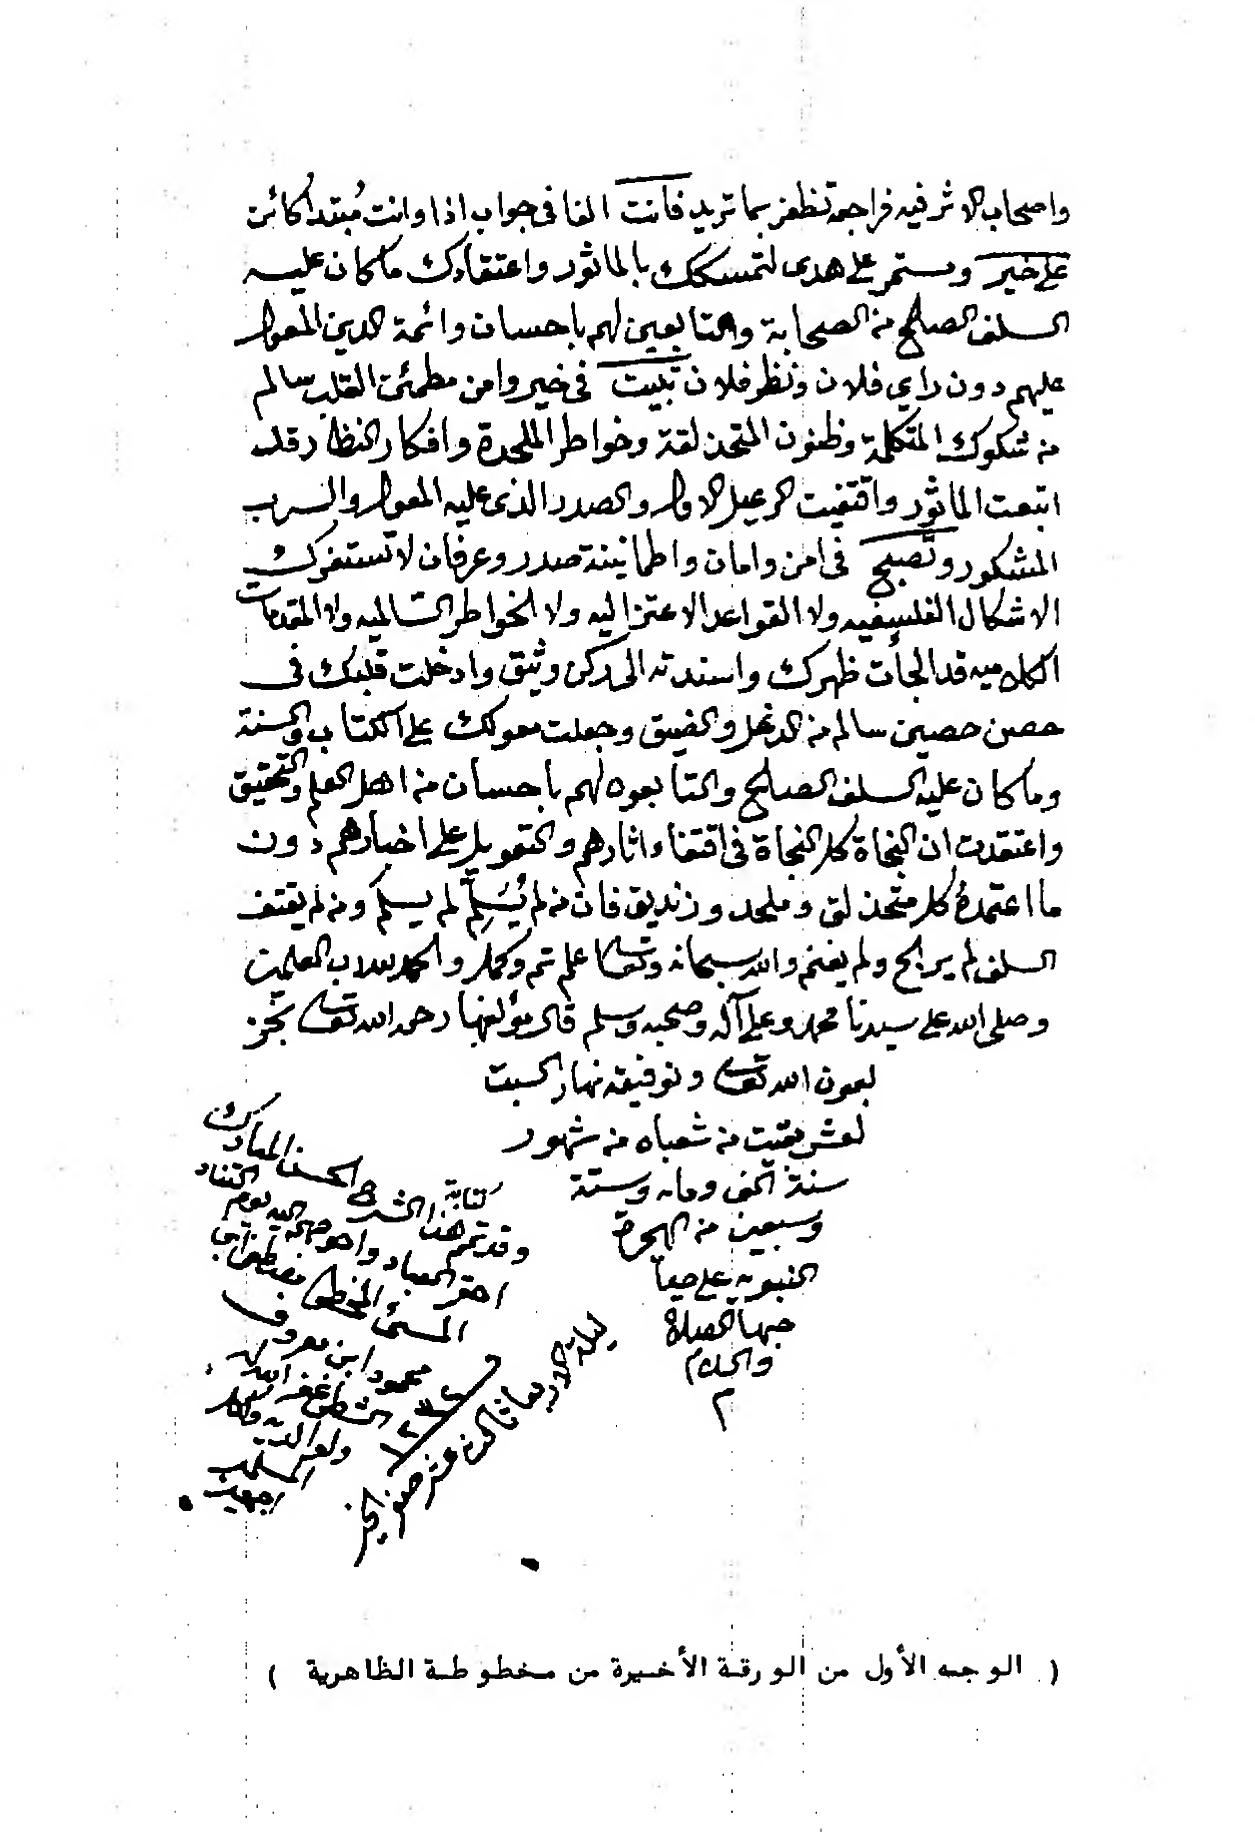 واصحاب الاثر فيه فراجعه تظفر بما تريد فانت الفا في جواب اذا وانت مُبتدأ كائن
على خير ومستمر على هدى لتمسكك بالماثور واعتقادك ما كان عليه
السلف الصالح من الصحابة والتابعين لهم باحسان وائمة الدين المعول
عليهم دون راي فلان ونظر فلان تبيت في خير وامن مطمئن القلب سالم
من شكوك المتكلمة وظنون المتحذلقة وخواطر الملحدة وافكار النظار قد
اتبعت الماثور واقتفيت الرعيل الاول والصدر الذي عليه المعول والسرب
المشكور وتصبح في امن وامان واطمانينة صدر وعرفان لا تستفزك
الاشكال الفلسفيه ولا القواعد الاعتزاليه ولا الخواطر السالميه ولا المقدمات
الكلاميه قد الجأت ظهرك واسندته الى ركن وثيق وادخلت قلبك في
حصن حصين سالم من الدغل والضيق وجعلت معولك على الكتاب والسنة
وما كان عليه السلف الصالح والتابعون لهم باحسان من اهل العلم والتحقيق
واعتقدت ان النجاة كل النجاة في اقتفاء اثارهم والتعويل على اخبارهم دون
ما اعتمدهُ كل متحذلق وملحد وزنديق فان من لم يُسَلِّم لم يسلم ومن لم يقتف
السلف لم يربح ولم يغنم والله سبحانه وتعالى اعلم تم وكمل والحمد لله رب العلمين
وصلى الله على سيدنا محمد وعلى آله وصحبه وسلم قال مؤلفها رحمه الله تعالى نجز
بعون الله تعالى وتوفيقه نهار السبت
لعشر بقيت من شعبان من شهور
سنة الف ومايه وستة
وسبعين من الهجرة
النبويه على صا
حبها الصلاة
والسلام
م
وقد تمم كتابة هذا الشرح الحسن المبارك
احقر العباد واحوجهم اليه يوم التناد
المسئ الخطا مصطفى ابن
محمود ابن معروف
الشطي غفر الله له
ولوالديه ولكل
المسلمين
اجمعين
ليلة الاربعا ثالث عشر صفر الخير